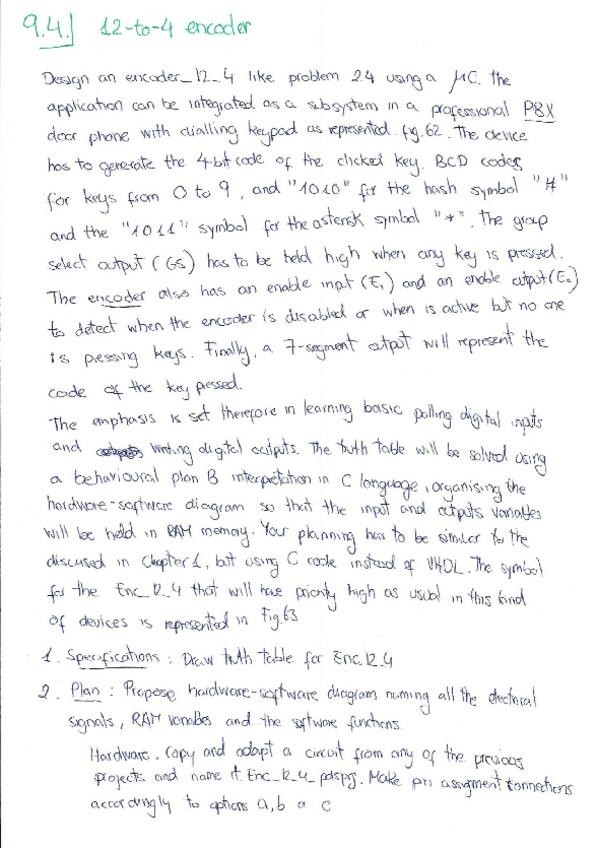 9.4. 12-to-4 encoder
Design an encoder_12_4 like problem 2.4 using a μC. The
application can be integrated as a subsystem in a professional PBX
door phone with dialling keypad as represented fig. 62. The device
has to generate the 4-bit code of the clicked key. BCD codes
for keys from 0 to 9, and "1010" for the hash symbol "#"
and the "1011" symbol for the asterisk symbol "*". The group
select output (GS) has to be held high when any key is pressed.
The encoder also has an enable input (E1) and an enable output (Eo)
to detect when the encoder is disabled or when is active but no one
is pressing keys. Finally, a 7-segment output will represent the
code of the key pressed.
The emphasis is set therefore in learning basic polling digital inputs
and writing digital outputs. The truth table will be solved using
a behavioural plan B interpretation in C language, organising the
hardware-software diagram so that the input and outputs variables
will be held in RAM memory. Your planning has to be similar to the
discused in Chapter 1, but using C code instead of VHDL. The symbol
for the Enc_12_4 that will have priority high as usual in this kind
of devices is represented in Fig. 63
1. Specifications: Draw truth table for Enc_12_4
2. Plan: Propose hardware-software diagram naming all the electrical
signals, RAM variables and the software functions.
Hardware. Copy and adapt a circuit from any of the previous
projects and name it Enc_12_4_pdsprj. Make pin assignment connections
accordingly to options a, b or c